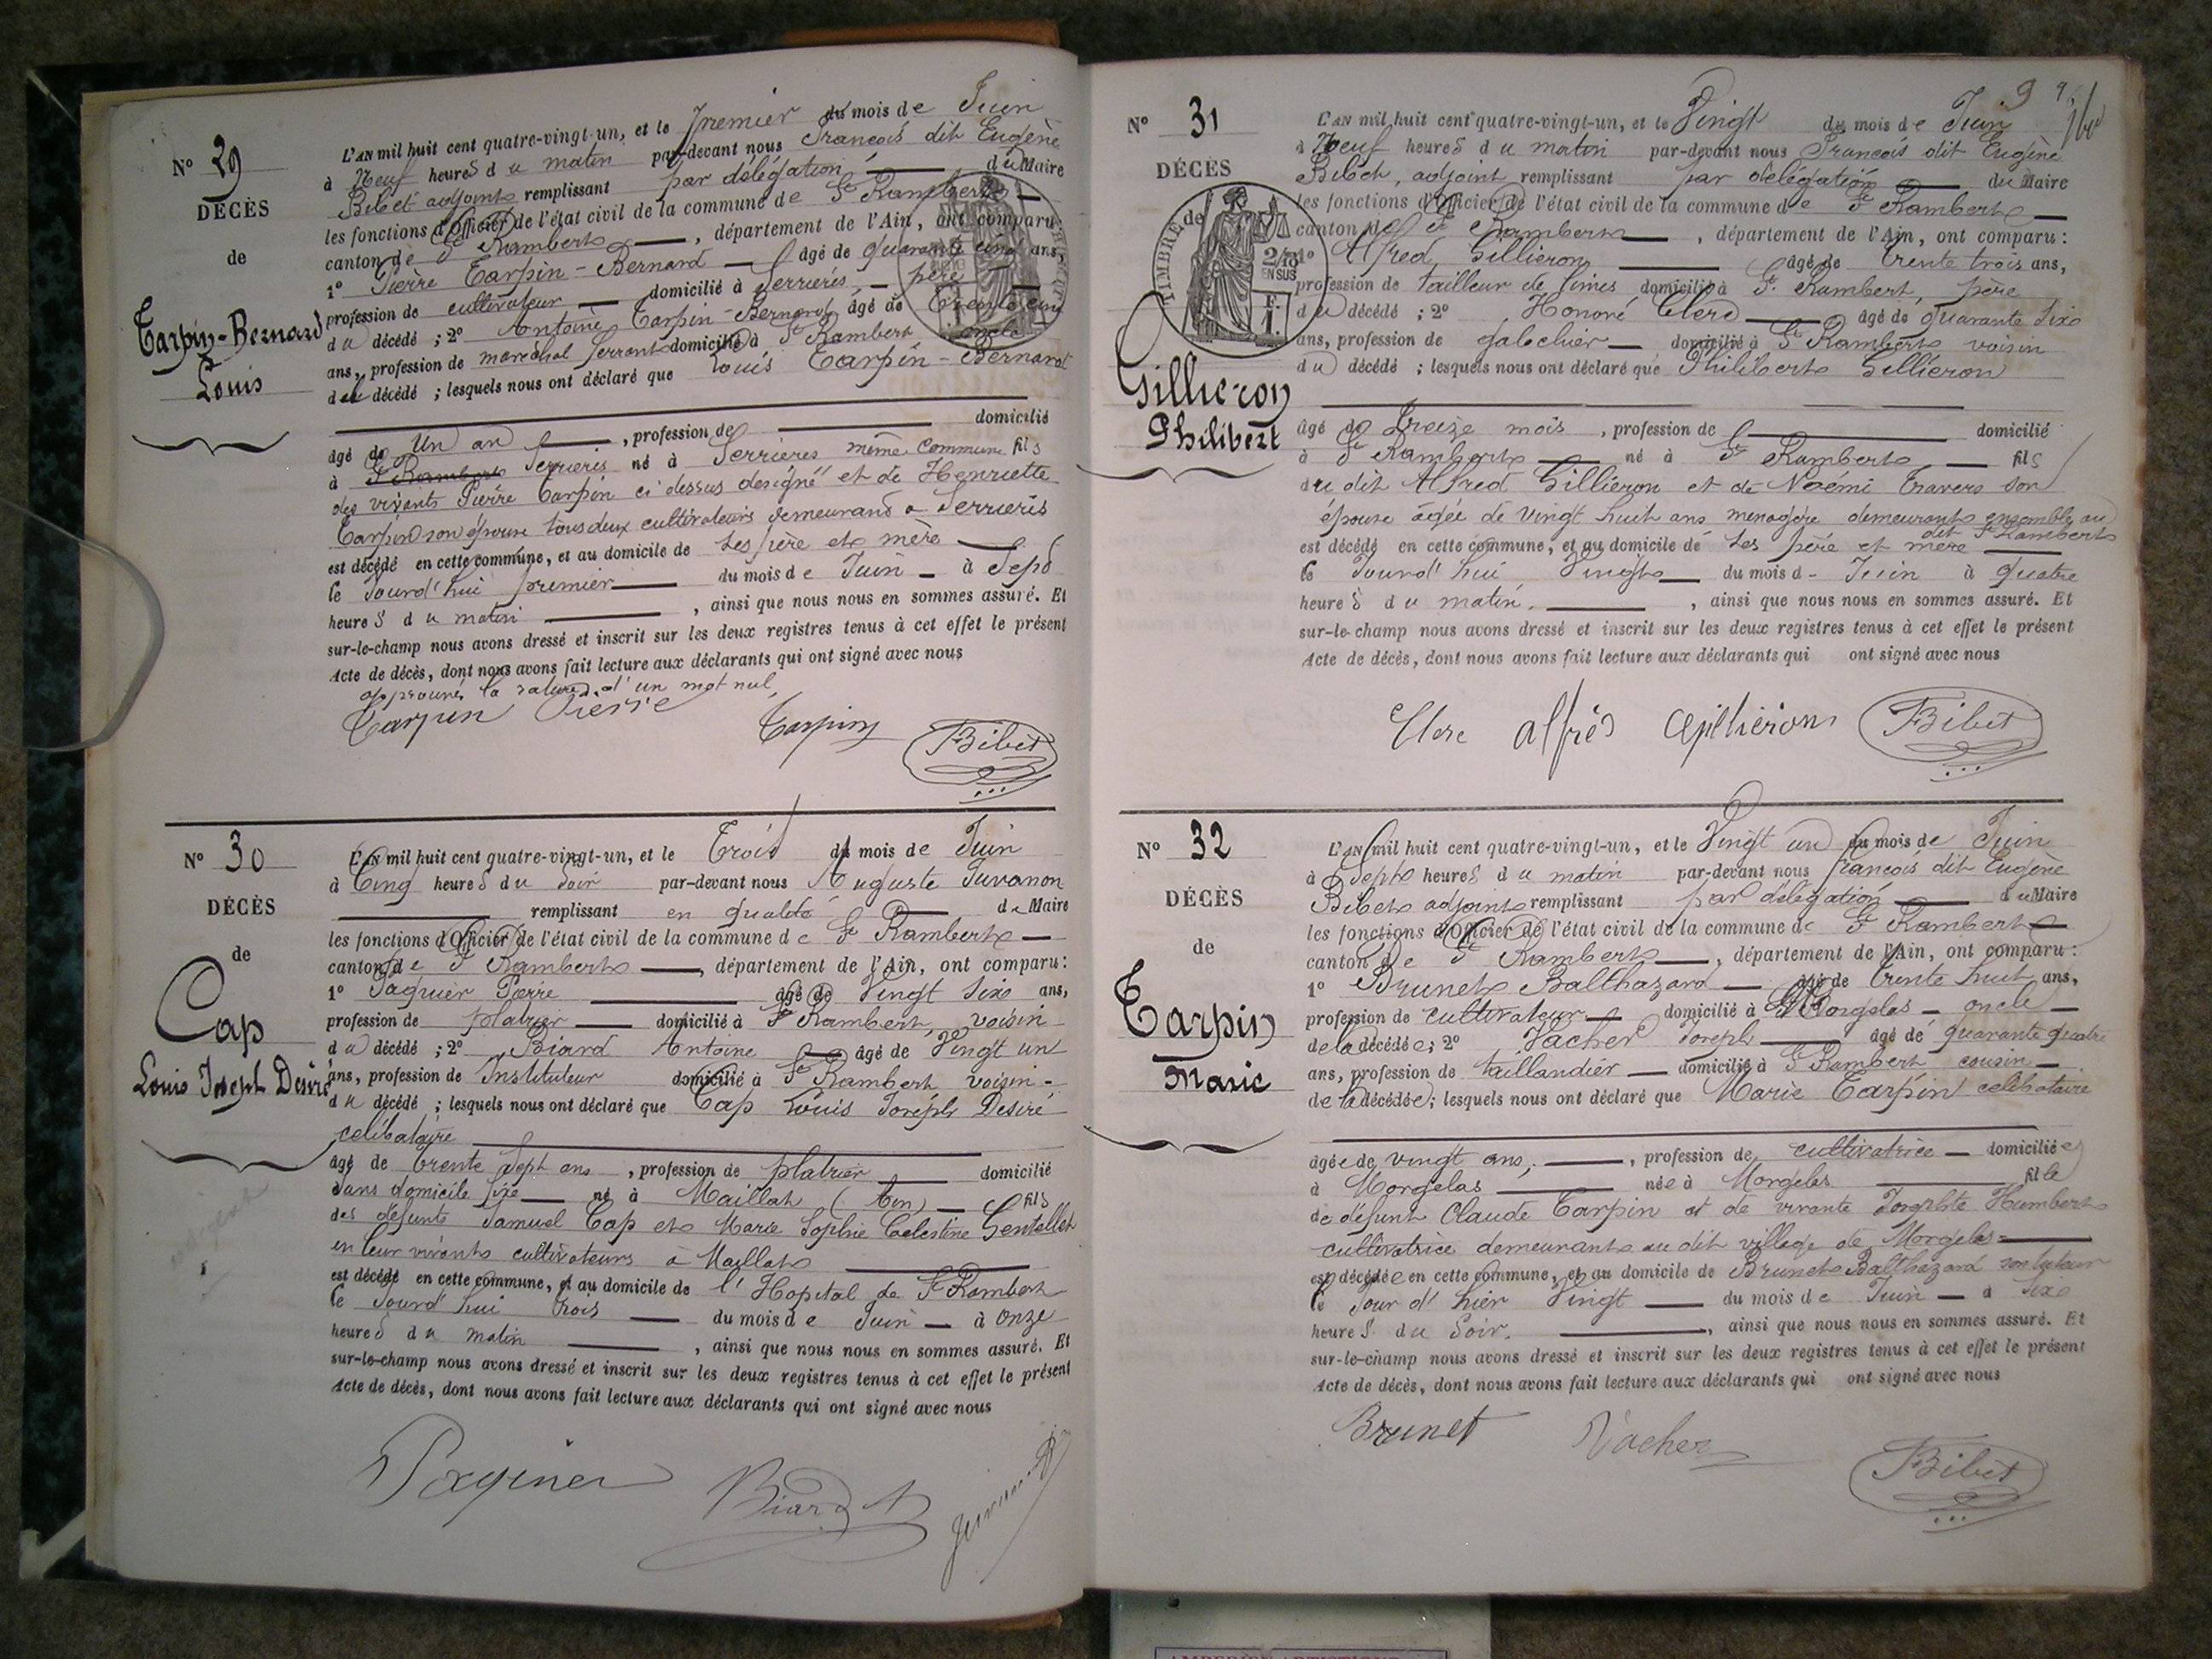 N° 29
DÉCÈS
de
Tarpin-Bernard
Louis
L'AN mil huit cent quatre-vingt-un, et le premier du mois de Juin
à Neuf heures du matin par-devant nous François dit Eugène
Bibet adjoint remplissant par délégation du Maire
les fonctions d'Officier de l'état civil de la commune de St Rambert
canton de St Rambert, département de l'Ain, ont comparu:
1° Pierre Tarpin-Bernard âgé de quarante cinq ans,
profession de cultivateur domicilié à Serrières, père
du décédé ; 2° Antoine Tarpin-Bernard âgé de trente
ans, profession de maréchal ferrant domicilié à St Rambert oncle
du décédé ; lesquels nous ont déclaré que Louis Tarpin-Bernard
domicilié
âgé de Un an, profession de
à St Rambert Serrieres né à Serrieres même commune fils
des vivants Pierre Tarpin ci dessus designé et de Henriette
Tarpin son épouse tous deux cultivateurs demeurand a Serrieres
est décédé en cette commune, et au domicile de ses père et mère
le Jourd'hui premier du mois de Juin à Sept
heures du matin, ainsi que nous nous en sommes assuré. Et
sur-le-champ nous avons dressé et inscrit sur les deux registres tenus à cet effet le présent
Acte de décès, dont nous avons fait lecture aux déclarants qui ont signé avec nous
approuvé la rature d'un mot nul
Tarpin Pierre Tarpin Bibet
N° 30
DÉCÈS
de
Cap
Louis Joseph Desiré
L'AN mil huit cent quatre-vingt-un, et le Trois du mois de Juin
à Cinq heures du Soir par-devant nous Auguste Juvanon
remplissant en qualité de Maire
les fonctions d'Officier de l'état civil de la commune de St Rambert
canton de St Rambert, département de l'Ain, ont comparu:
1° Paquier Pierre âgé de Vingt six ans,
profession de platrier domicilié à St Rambert, voisin
du décédé ; 2° Biard Antoine âgé de Vingt un
ans, profession de Instituteur domicilié à St Rambert voisin
du décédé ; lesquels nous ont déclaré que Cap Louis Joseph Desiré
celibataire
âgé de trente sept ans, profession de platrier domicilié
sans domicile fixe né à Maillat (Ain) fils
des defunts Samuel Cap et Marie Sophie Celestine
en leur vivants cultivateurs à Maillat
est décédé en cette commune, et au domicile de l'Hopital de St Rambert
le Jourd'hui trois du mois de Juin à onze
heures du matin, ainsi que nous nous en sommes assuré. Et
sur-le-champ nous avons dressé et inscrit sur les deux registres tenus à cet effet le présent
Acte de décès, dont nous avons fait lecture aux déclarants qui ont signé avec nous
Paquier Biard A
N° 31
DÉCÈS
TIMBRE de
2/10 EN SUS
Gillieron
Philibert
L'AN mil huit cent quatre-vingt-un, et le Vingt du mois de Juin
à Neuf heures du matin par-devant nous François dit Eugène
Bibet, adjoint remplissant par délégation du Maire
les fonctions d'Officier de l'état civil de la commune de St Rambert
canton de St Rambert, département de l'Ain, ont comparu:
1° Alfred Gillieron âgé de trente trois ans,
profession de tailleur de limes domicilié à St Rambert, père
du décédé ; 2° Honoré Clerc âgé de quarante six
ans, profession de galochier domicilié à St Rambert voisin
du décédé ; lesquels nous ont déclaré que Philibert Gillieron
âgé de Treize mois, profession de domicilié
à St Rambert né à St Rambert fils
du dit Alfred Gillieron et de Noemi Travers son
épouse agée de Vingt huit ans menagère demeurants ensemble au
dit St Rambert
est décédé en cette commune, et au domicile de ses père et mère
le Jourd'hui Vingt du mois d- Juin à quatre
heures du matin, ainsi que nous nous en sommes assuré. Et
sur-le-champ nous avons dressé et inscrit sur les deux registres tenus à cet effet le présent
Acte de décès, dont nous avons fait lecture aux déclarants qui ont signé avec nous
Clerc alfrès gillieron Bibet
N° 32
DÉCÈS
de
Tarpin
Marie
L'AN mil huit cent quatre-vingt-un, et le Vingt un du mois de Juin
à Sept heures du matin par-devant nous François dit Eugène
Bibet adjoint remplissant par délégation du Maire
les fonctions d'Officier de l'état civil de la commune de St Rambert
canton de St Rambert, département de l'Ain, ont comparu:
1° Brunet Balthazard âgé de trente huit ans,
profession de cultivateur domicilié à Morgelas oncle
de la décédée; 2° Vacher Joseph âgé de quarante quatre
ans, profession de taillandier domicilié à St Rambert cousin
de la décédée; lesquels nous ont déclaré que Marie Tarpin celibataire
âgée de vingt ans, profession de cultivatrice domiciliée
à Morgelas née à Morgelas fille
de défunt Claude Tarpin et de vivante Josephte Humbert
cultivatrice demeurant au dit village de Morgelas
est décédée en cette commune, et au domicile de Brunet Balthazard son tuteur
le Jour d'hier Vingt du mois de Juin à Six
heures du Soir, ainsi que nous nous en sommes assuré. Et
sur-le-champ nous avons dressé et inscrit sur les deux registres tenus à cet effet le présent
Acte de décès, dont nous avons fait lecture aux déclarants qui ont signé avec nous
Brunet Vacher Bibet